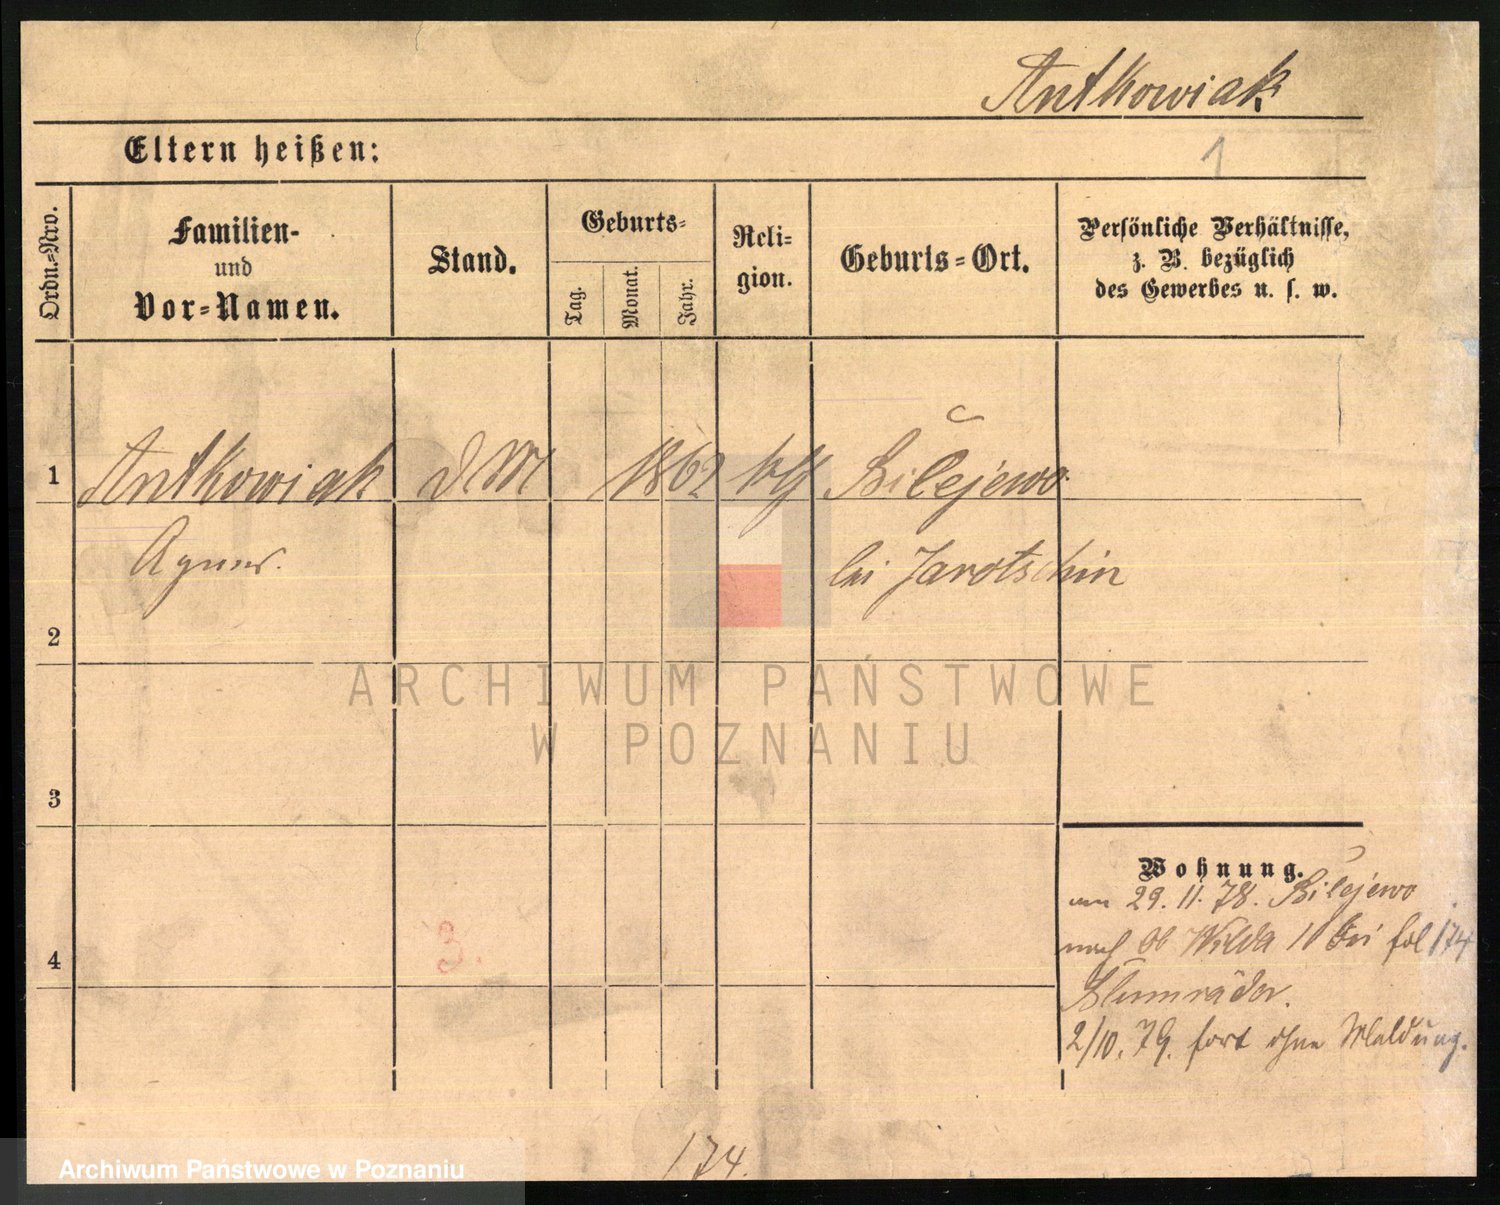 Antkowiak
Eltern heißen:
1
Ordn.=Nro.
Familien-
und
Vor=Namen.
Stand.
Geburts=
Tag.
Monat.
Jahr.
Reli=
gion.
Geburts=Ort.
Persönliche Verhältnisse,
z. B. bezüglich
des Gewerbes u. s. w.
1 Antkowiak d M 1862 kth Bilejewo
Agnes. bei Jarotschin
2
ARCHIWUM PAŃSTWOWE
W POZNANIU
3
Wohnung.
am 29. 11. 78. Bilejewo
nach Ob Wilda 10 bei fol 174
3.
4
2/10. 79. fort ohne Meldung.
174.
Archiwum Państwowe w Poznaniu